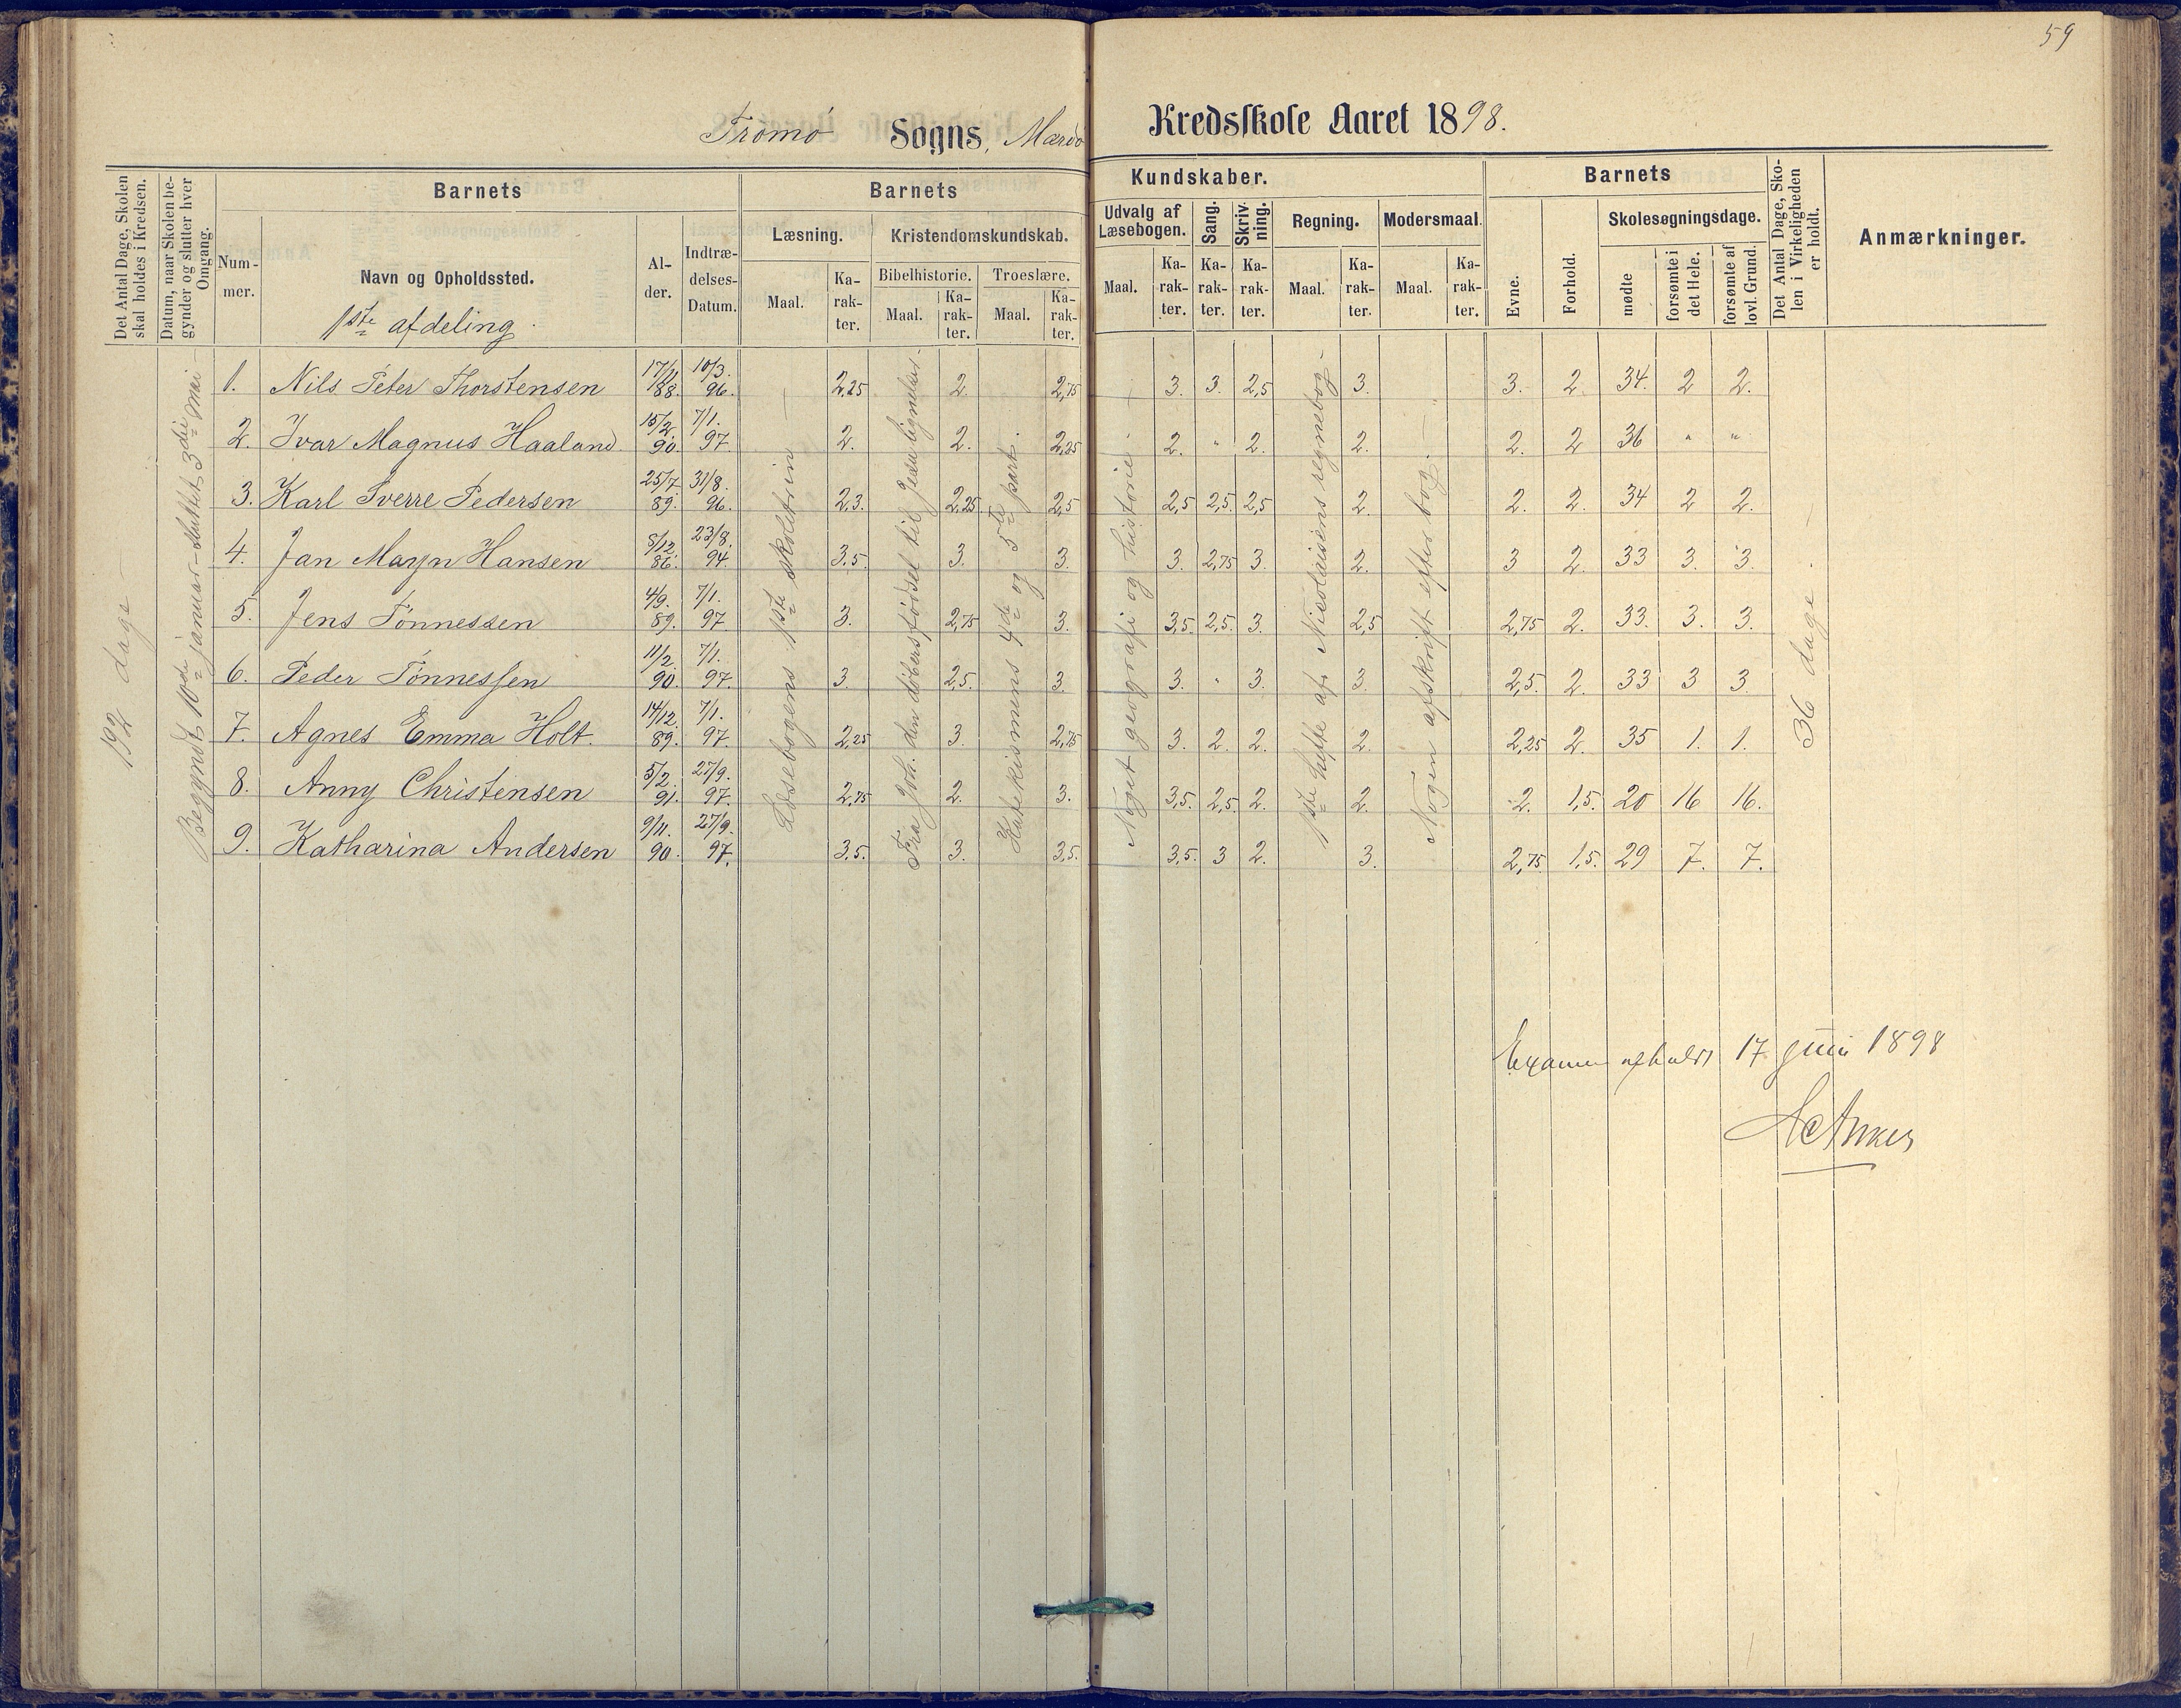 59
Tromø Sogns, Mærdø Kredsskole Aaret 1898.
Det Antal Dage, Skolen skal holdes i Kredsen.
Datum, naar Skolen begynder og slutter hver Omgang.
Barnets
Nummer.
Navn og Opholdssted.
1ste afdeling.
Alder.
Indtrædelses-Datum.
Barnets Kundskaber.
Læsning.
Maal.
Karakter.
Kristendomskundskab.
Bibelhistorie.
Maal.
Karakter.
Troeslære.
Maal.
Karakter.
Udvalg af Læsebogen.
Maal.
Karakter.
Sang.
Karakter.
Skrivning.
Karakter.
Regning.
Maal.
Karakter.
Modersmaal.
Maal.
Karakter.
Barnets
Evne.
Forhold.
Skolesøgningsdage.
mødte
forsømte i det Hele.
forsømte af lovl. Grund.
Det Antal Dage, Skolen i Virkeligheden er holdt.
Anmærkninger.
192 dage
Begyndt 10de januar - sluttet 3die mai
Læsebogens 1ste skoletrin
Fra Joh. den døbers fødsel til Jesu lignelser.
Katekismens 4de og 5te part.
Noget geografi og historie
1ste hefte af Nicolaisens regnebog
Nogen afskrift efter bog.
36 dage
1. Nils Peter Thorstensen 17/11 88. 10/3. 96. 2,25 2. 2,75 3. 3. 2,5 3. 3. 2. 34. 2 2.
2. Ivar Magnus Haaland. 15/2. 90. 7/1. 97. 2. 2. 2,25 2. " 2. 2. 2. 2 36 " "
3. Karl Sverre Pedersen 25/7. 89. 31/8. 96. 2,3. 2,25. 2,5 2,5 2,5. 2,5 2. 2. 2. 34 2 2.
4. Jan Mayn Hansen 8/12. 86. 23/8. 94. 3,5. 3. 3. 3. 2,75 3. 2. 3 2. 33 3. 3.
5. Jens Tønnessen 4/9. 89. 7/1. 97 3. 2,75 3. 3,5. 2,5. 3. 2,5 2,75 2. 33. 3. 3.
6. Peder Tønnessen 11/2. 90. 7/1. 97. 3. 2,5. 3. 3. " 3. 3. 2,5. 2. 33 3 3.
7. Agnes Emma Holt. 14/12. 89. 7/1. 97. 2,25 3. 2,75 3. 2. 2. 2. 2,25 2. 35 1. 1.
8. Anny Christensen 5/2. 91. 27/9. 97. 2,75 2. 3. 3,5. 2,5. 2. 2. 2. 1,5. 20 16 16.
9. Katharina Andersen 9/11. 90. 27/9. 97. 3,5. 3. 3,5. 3,5. 3 2. 3. 2,75 1,5. 29 7. 7.
Examen afholdt 17 juni 1898